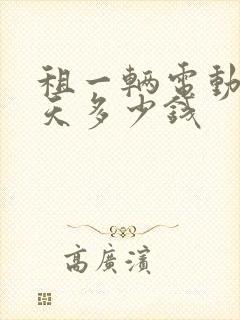 租一輛電動
天多少錢
高廣濱